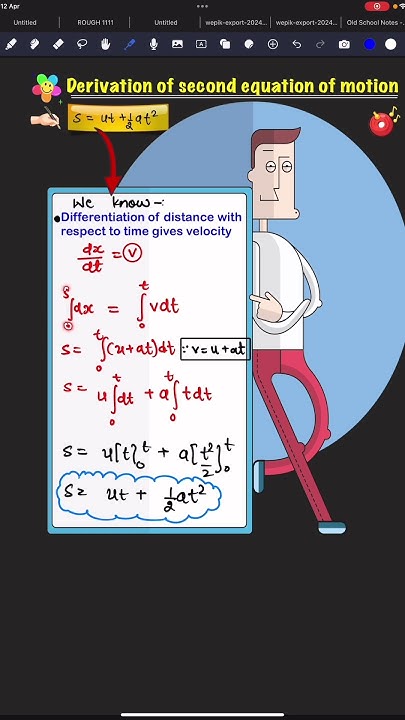 12 Apr
Untitled ROUGH 1111 Untitled wepik-export-2024... wepik-export-2024... Old School Notes -
Derivation of second equation of motion
s = ut + ½at²
We know -:
Differentiation of distance with
respect to time gives velocity
dx/dt = v
∫₀ˢ dx = ∫₀ᵗ vdt
s = ∫₀ᵗ (u+at)dt ∵ v = u + at
s = u∫₀ᵗ dt + a∫₀ᵗ tdt
s = u[t]₀ᵗ + a[t²/2]₀ᵗ
s = ut + ½at²